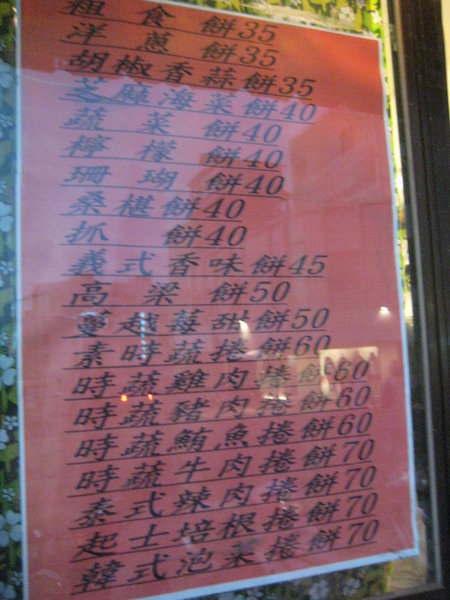 粗食餅35
洋蔥餅35
胡椒香蒜餅35
芝麻海菜餅40
蔬菜餅40
檸檬餅40
珊瑚餅40
桑椹餅40
抓餅40
義式香味餅45
高梁餅50
蔓越莓甜餅50
素時蔬捲餅60
時蔬雞肉捲餅60
時蔬豬肉捲餅60
時蔬鮪魚捲餅60
時蔬牛肉捲餅70
泰式辣肉捲餅70
起士培根捲餅70
韓式泡菜捲餅70